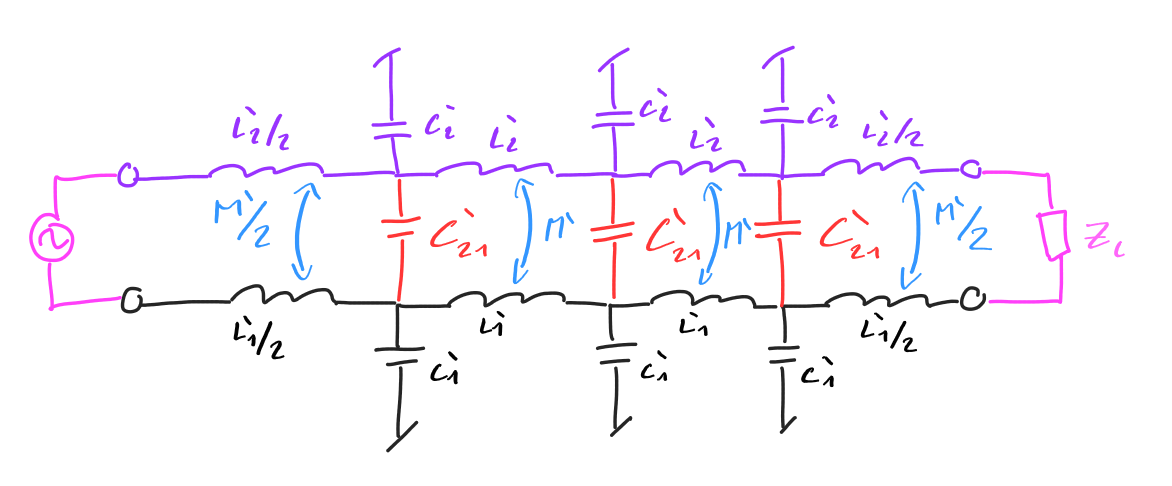 L'2/2
C'2
L'2
C'2
L'2
C'2
L'2/2
M'/2
C'21
M'
C'21
M'
C'21
M'/2
ZL
L'1/2
C'1
L'1
C'1
L'1
C'1
L'1/2